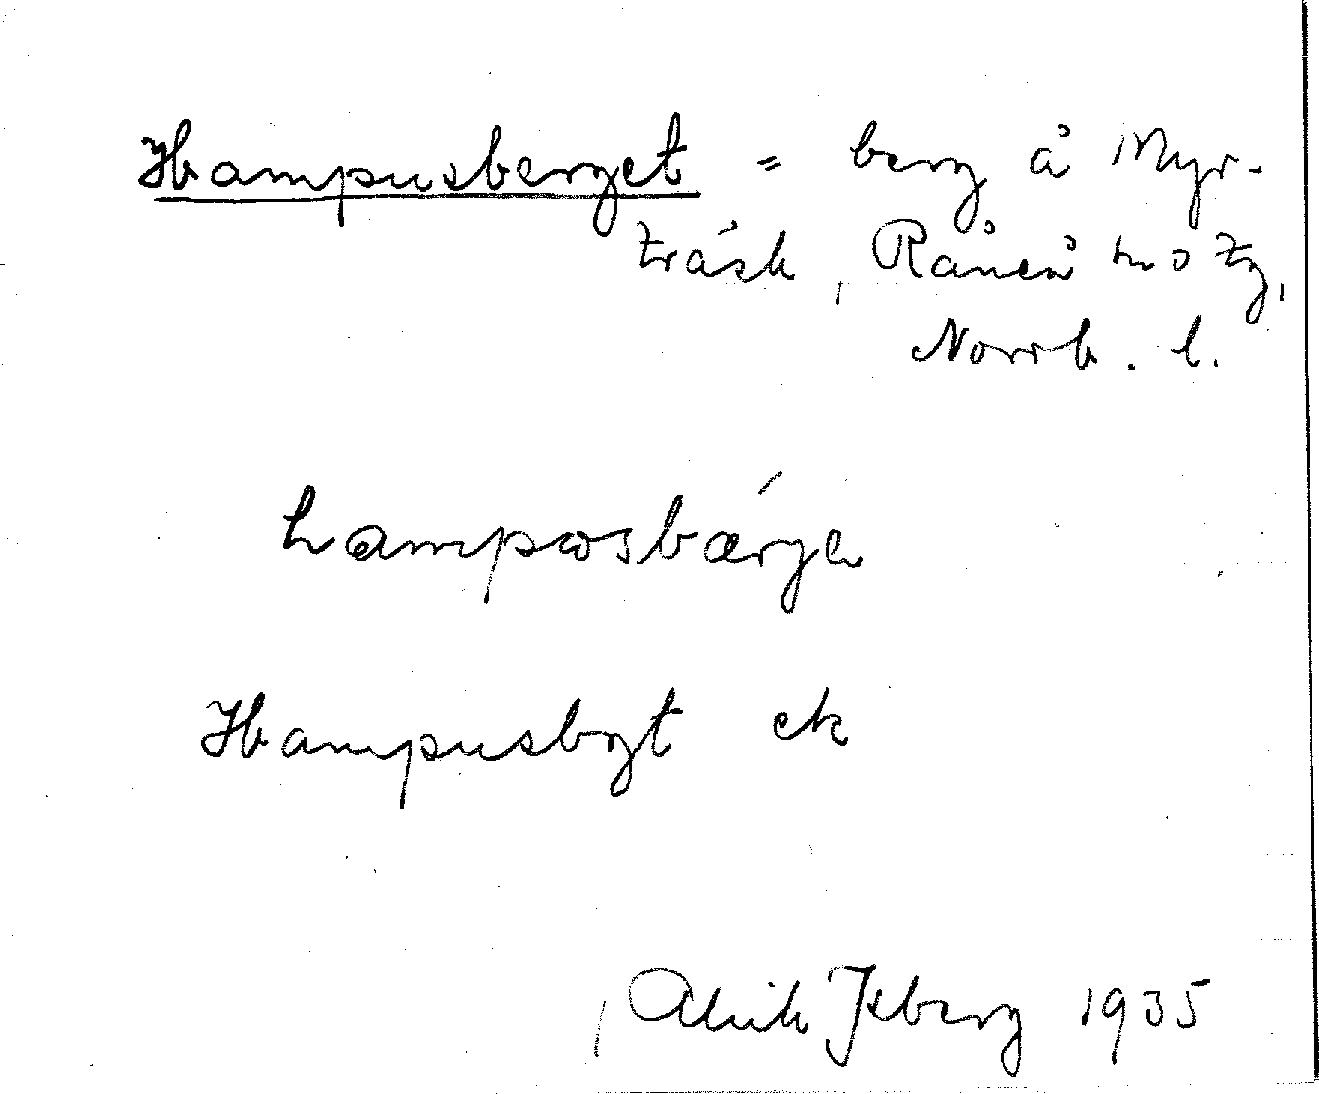 Hampusberget = berg å Myr-
träsk, Råneå sn o tg,
Norrb. l.
hampωsbærjə
Hampusbgt ek
Alrik Isberg 1935